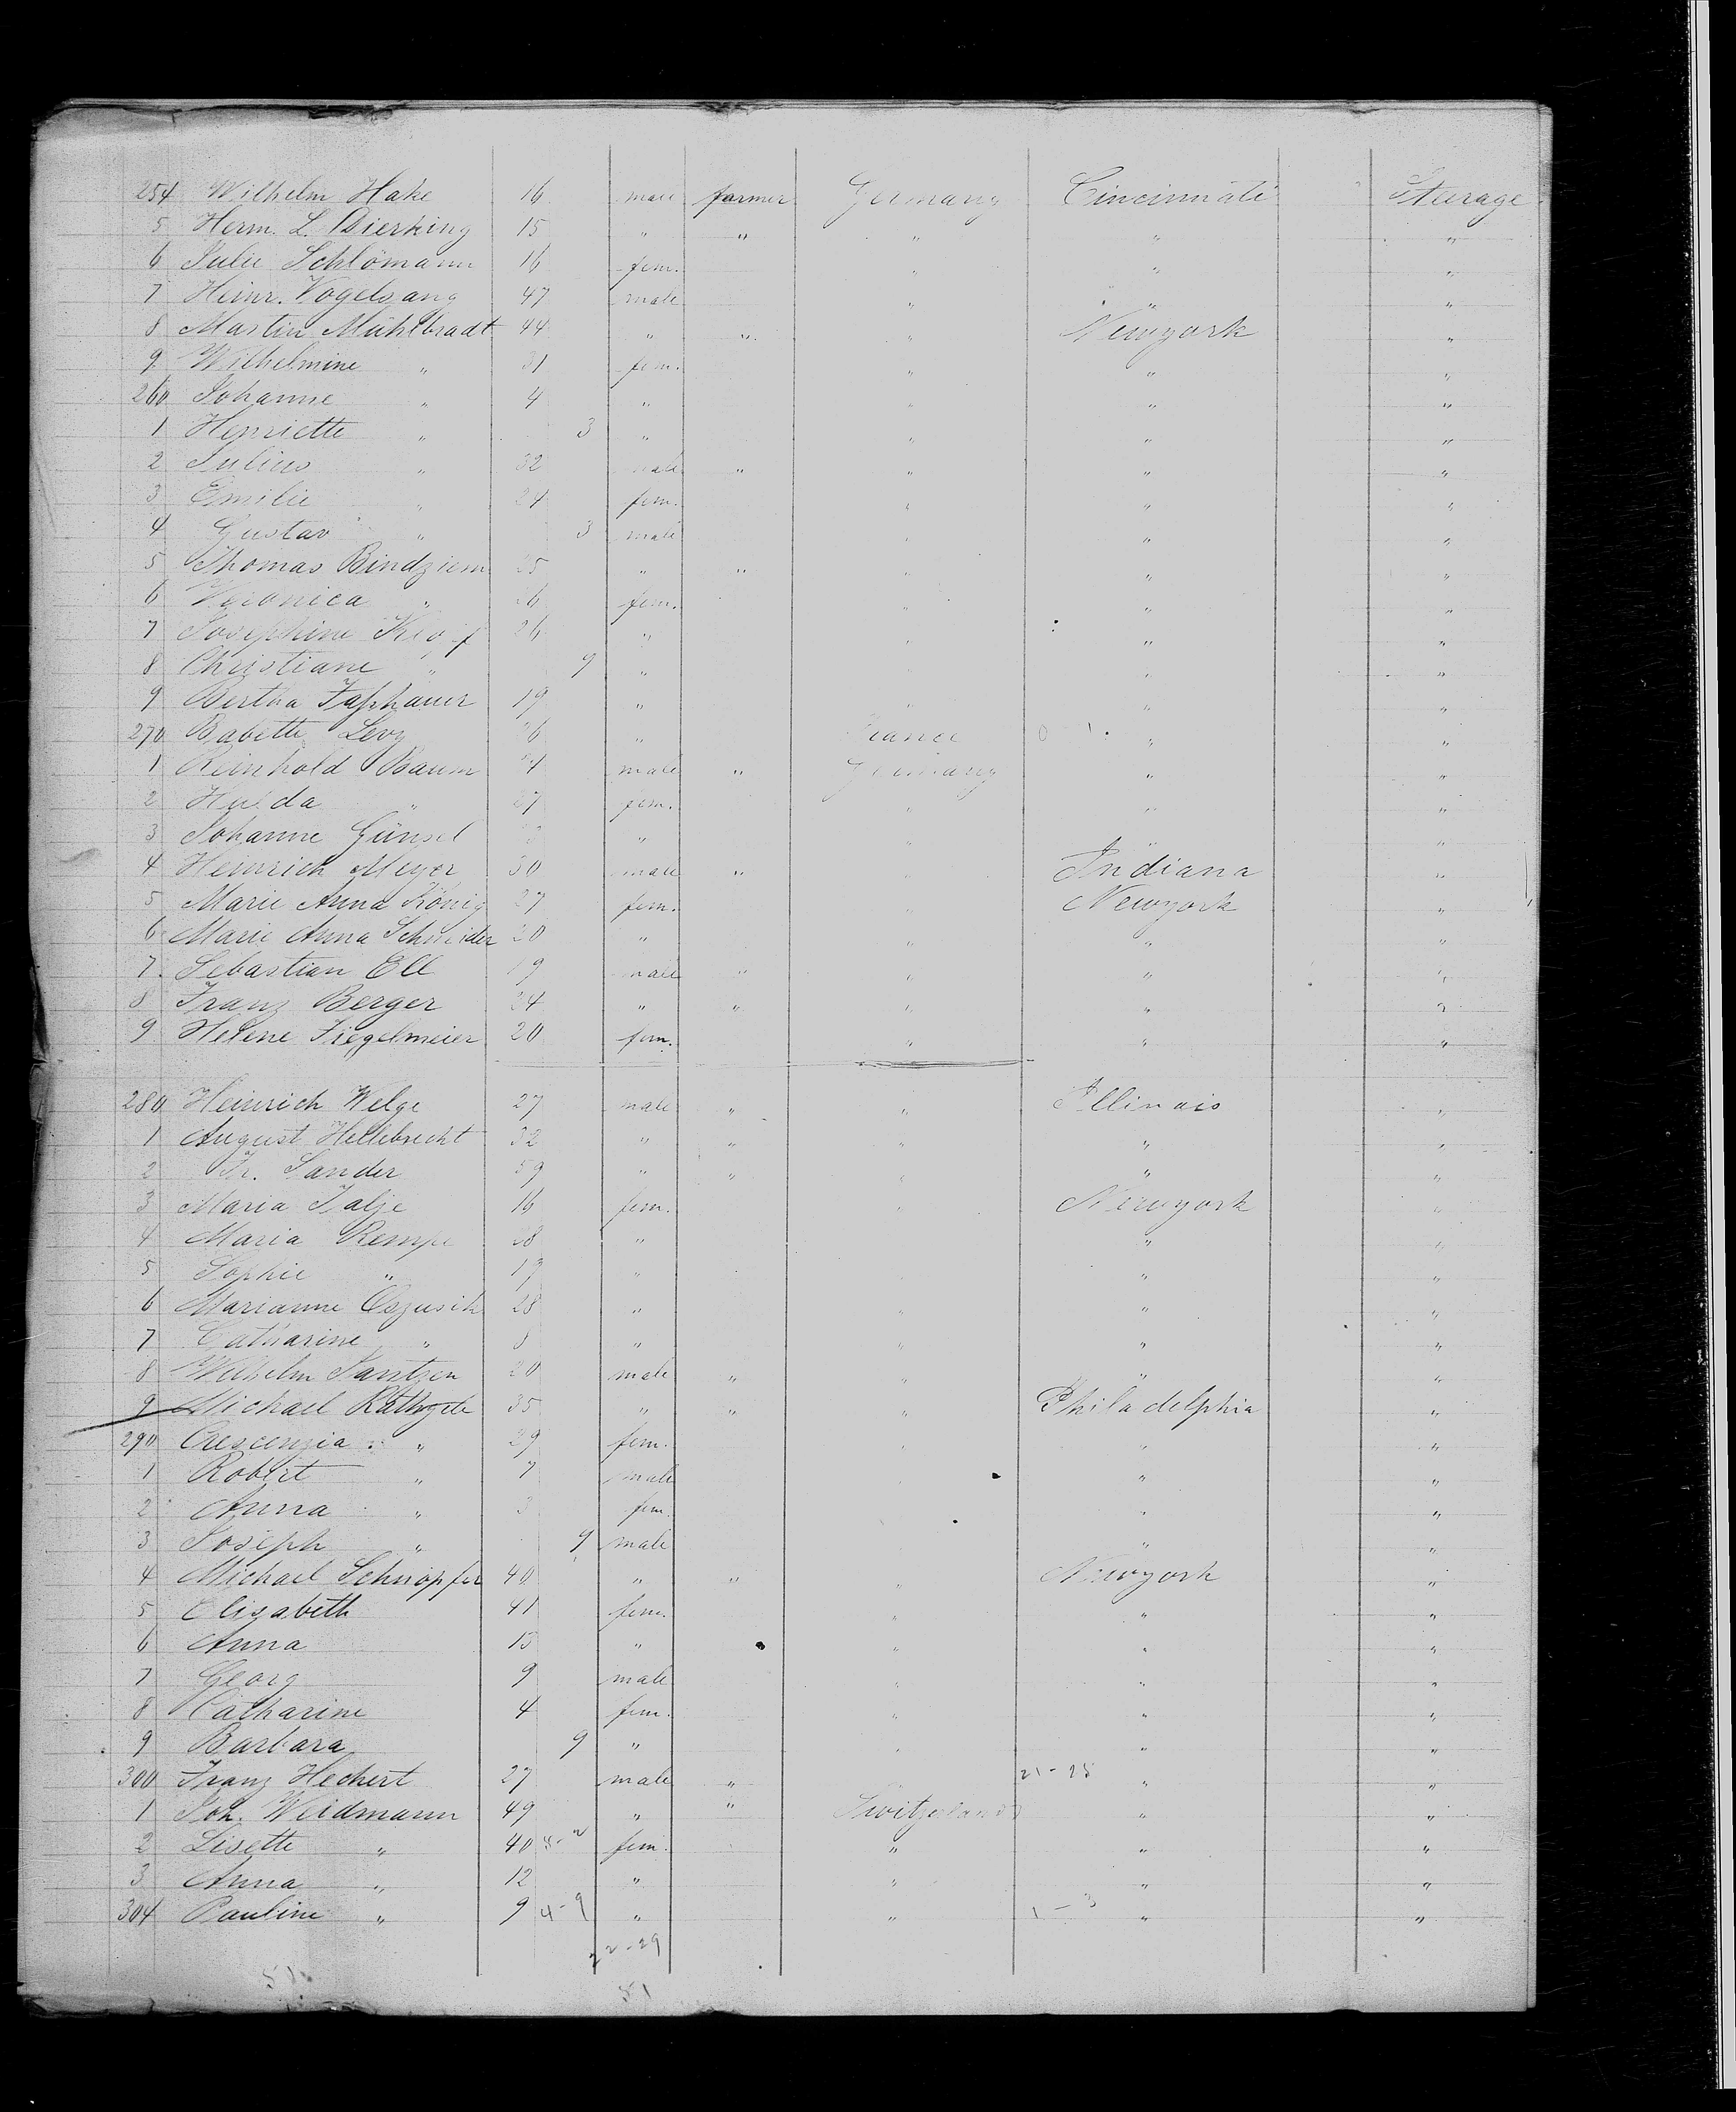 254 Wilhelm Hake 16 male farmer Germany Cincinnati Steerage
5 Herm. L. Dierking 15 " " " " "
6 Julie Schlömann 16 fem. " " "
7 Heinr. Vogelsang 47 male " " "
8 Martin Mühlbradt 44 " " " Newyork "
9 Wilhelmine " 31 fem. " " "
260 Johanne " 4 " " " "
1 Henriette " 3 " " " "
2 Julius " 32 male " " " "
3 Emilie " 24 fem. " " "
4 Gustav " 3 male " " "
5 Thomas Bindziem 25 " " " " "
6 Veronica " fem. " " "
7 Josephine 26 " " " "
8 Christiane " 9 " " "
9 Bertha 19 " " " "
270 Babette Levy " France " "
1 Reinhold Baum male " Germany " "
2 Hulda " 27 fem. " " "
3 Johanne Günsel " " " "
4 Heinrich Meyer 30 male " " Indiana "
5 Marie Anna König 27 fem. " Newyork "
6 Marie Anna Schneider 20 " " " "
7 Sebastian Ell 19 male " " " "
8 Franz Berger 24 " " " " "
9 Helene Ziegelmeier 20 fem. " " "
280 Heinrich Welge 27 male " " Illinois "
1 August Hillebrecht 32 " " " " "
2 Fr. Sander 59 " " " " "
3 Maria Talje 16 fem. " Newyork "
4 Maria Rempe 28 " " "
5 Sophie " 17 " " "
6 Marianne 28 " " " "
7 Catharine " 8 " " " "
8 Wilhelm Jantzen 20 male " " " "
9 Michael 35 " " " Philadelphia "
290 Crescenzia " 29 fem. " " "
1 Robert " 7 male " "
2 Anna " 3 fem. " "
3 Joseph " 9 male " "
4 Michael Schnöpfer 40 " " " Newyork "
5 Elisabeth 41 fem. " " "
6 Anna 13 " " " "
7 Georg 9 male " " "
8 Catharine 4 fem. " " "
9 Barbara 9 " " " "
300 Franz Heckert 27 male " " 21-28 " "
1 Joh. Weidmann 49 " " Switzerland " "
2 Lisette " 40 fem. " " "
3 Anna " 12 " " " "
304 Pauline " 9 4-9 " " 1-3 " "
22-29
51 51